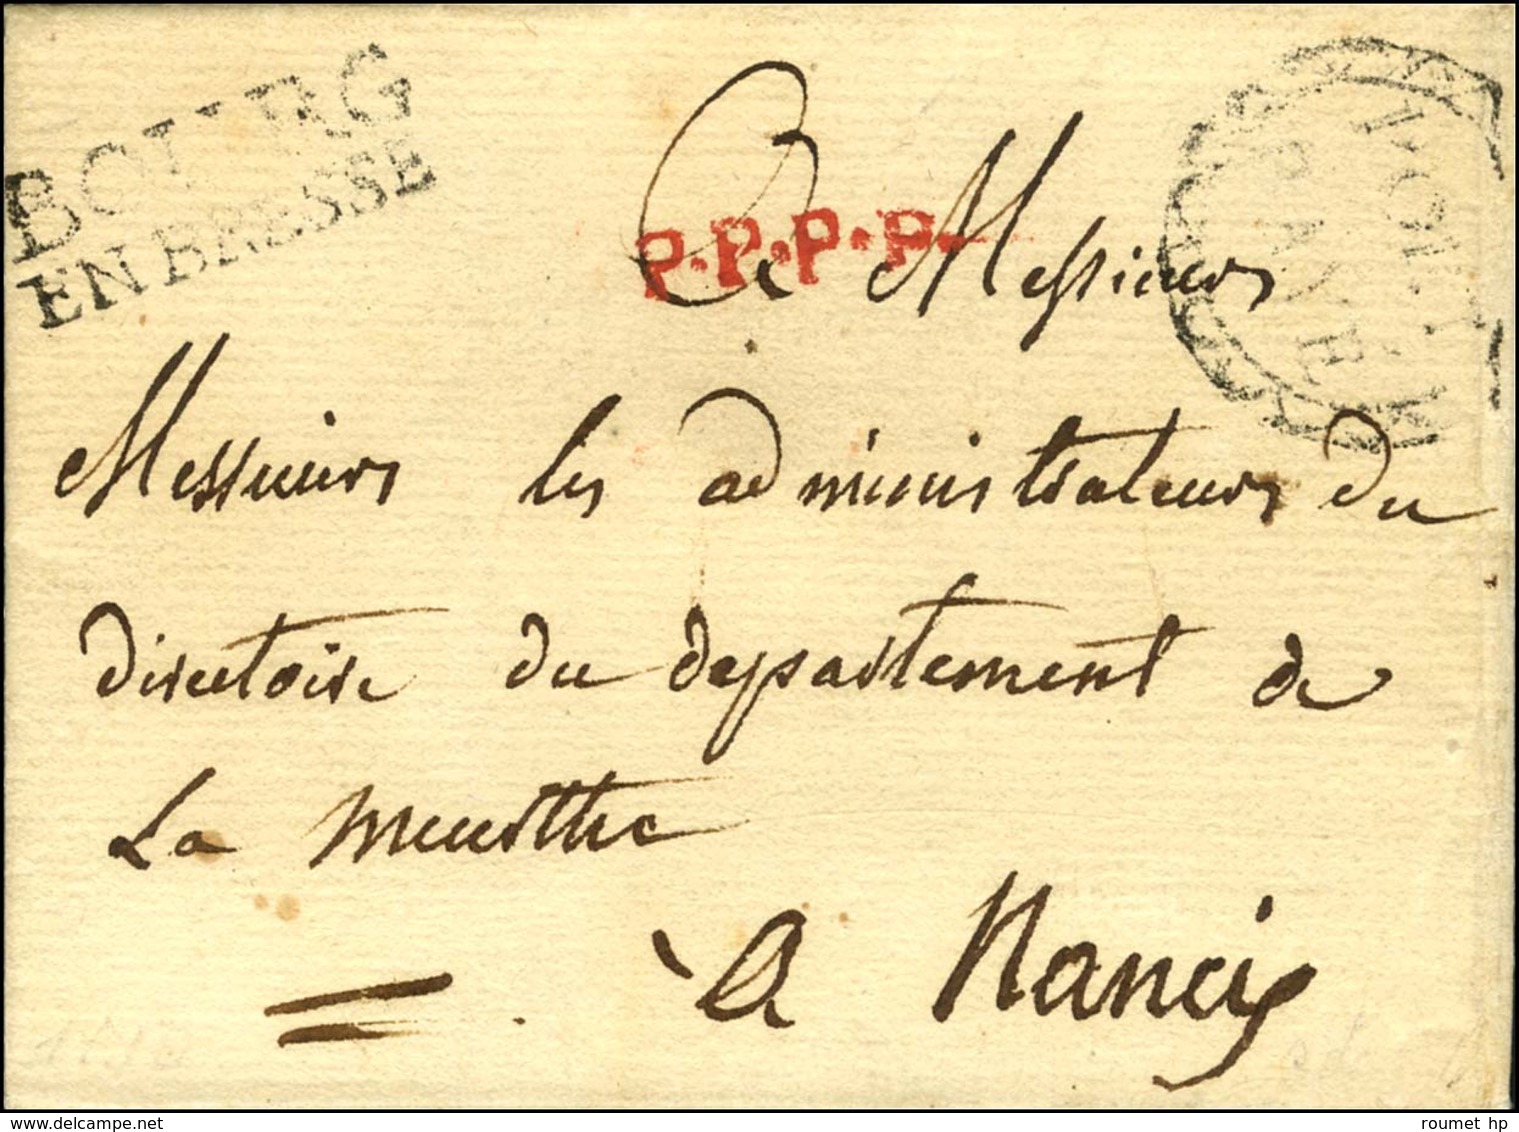 BOURG
EN BRESSE
P.P.P.P.
PORT
PAYÉ
A Messieurs
Messieurs les administrateurs du
directoire du departement de
La meurthe
à Nancy
roumet hp